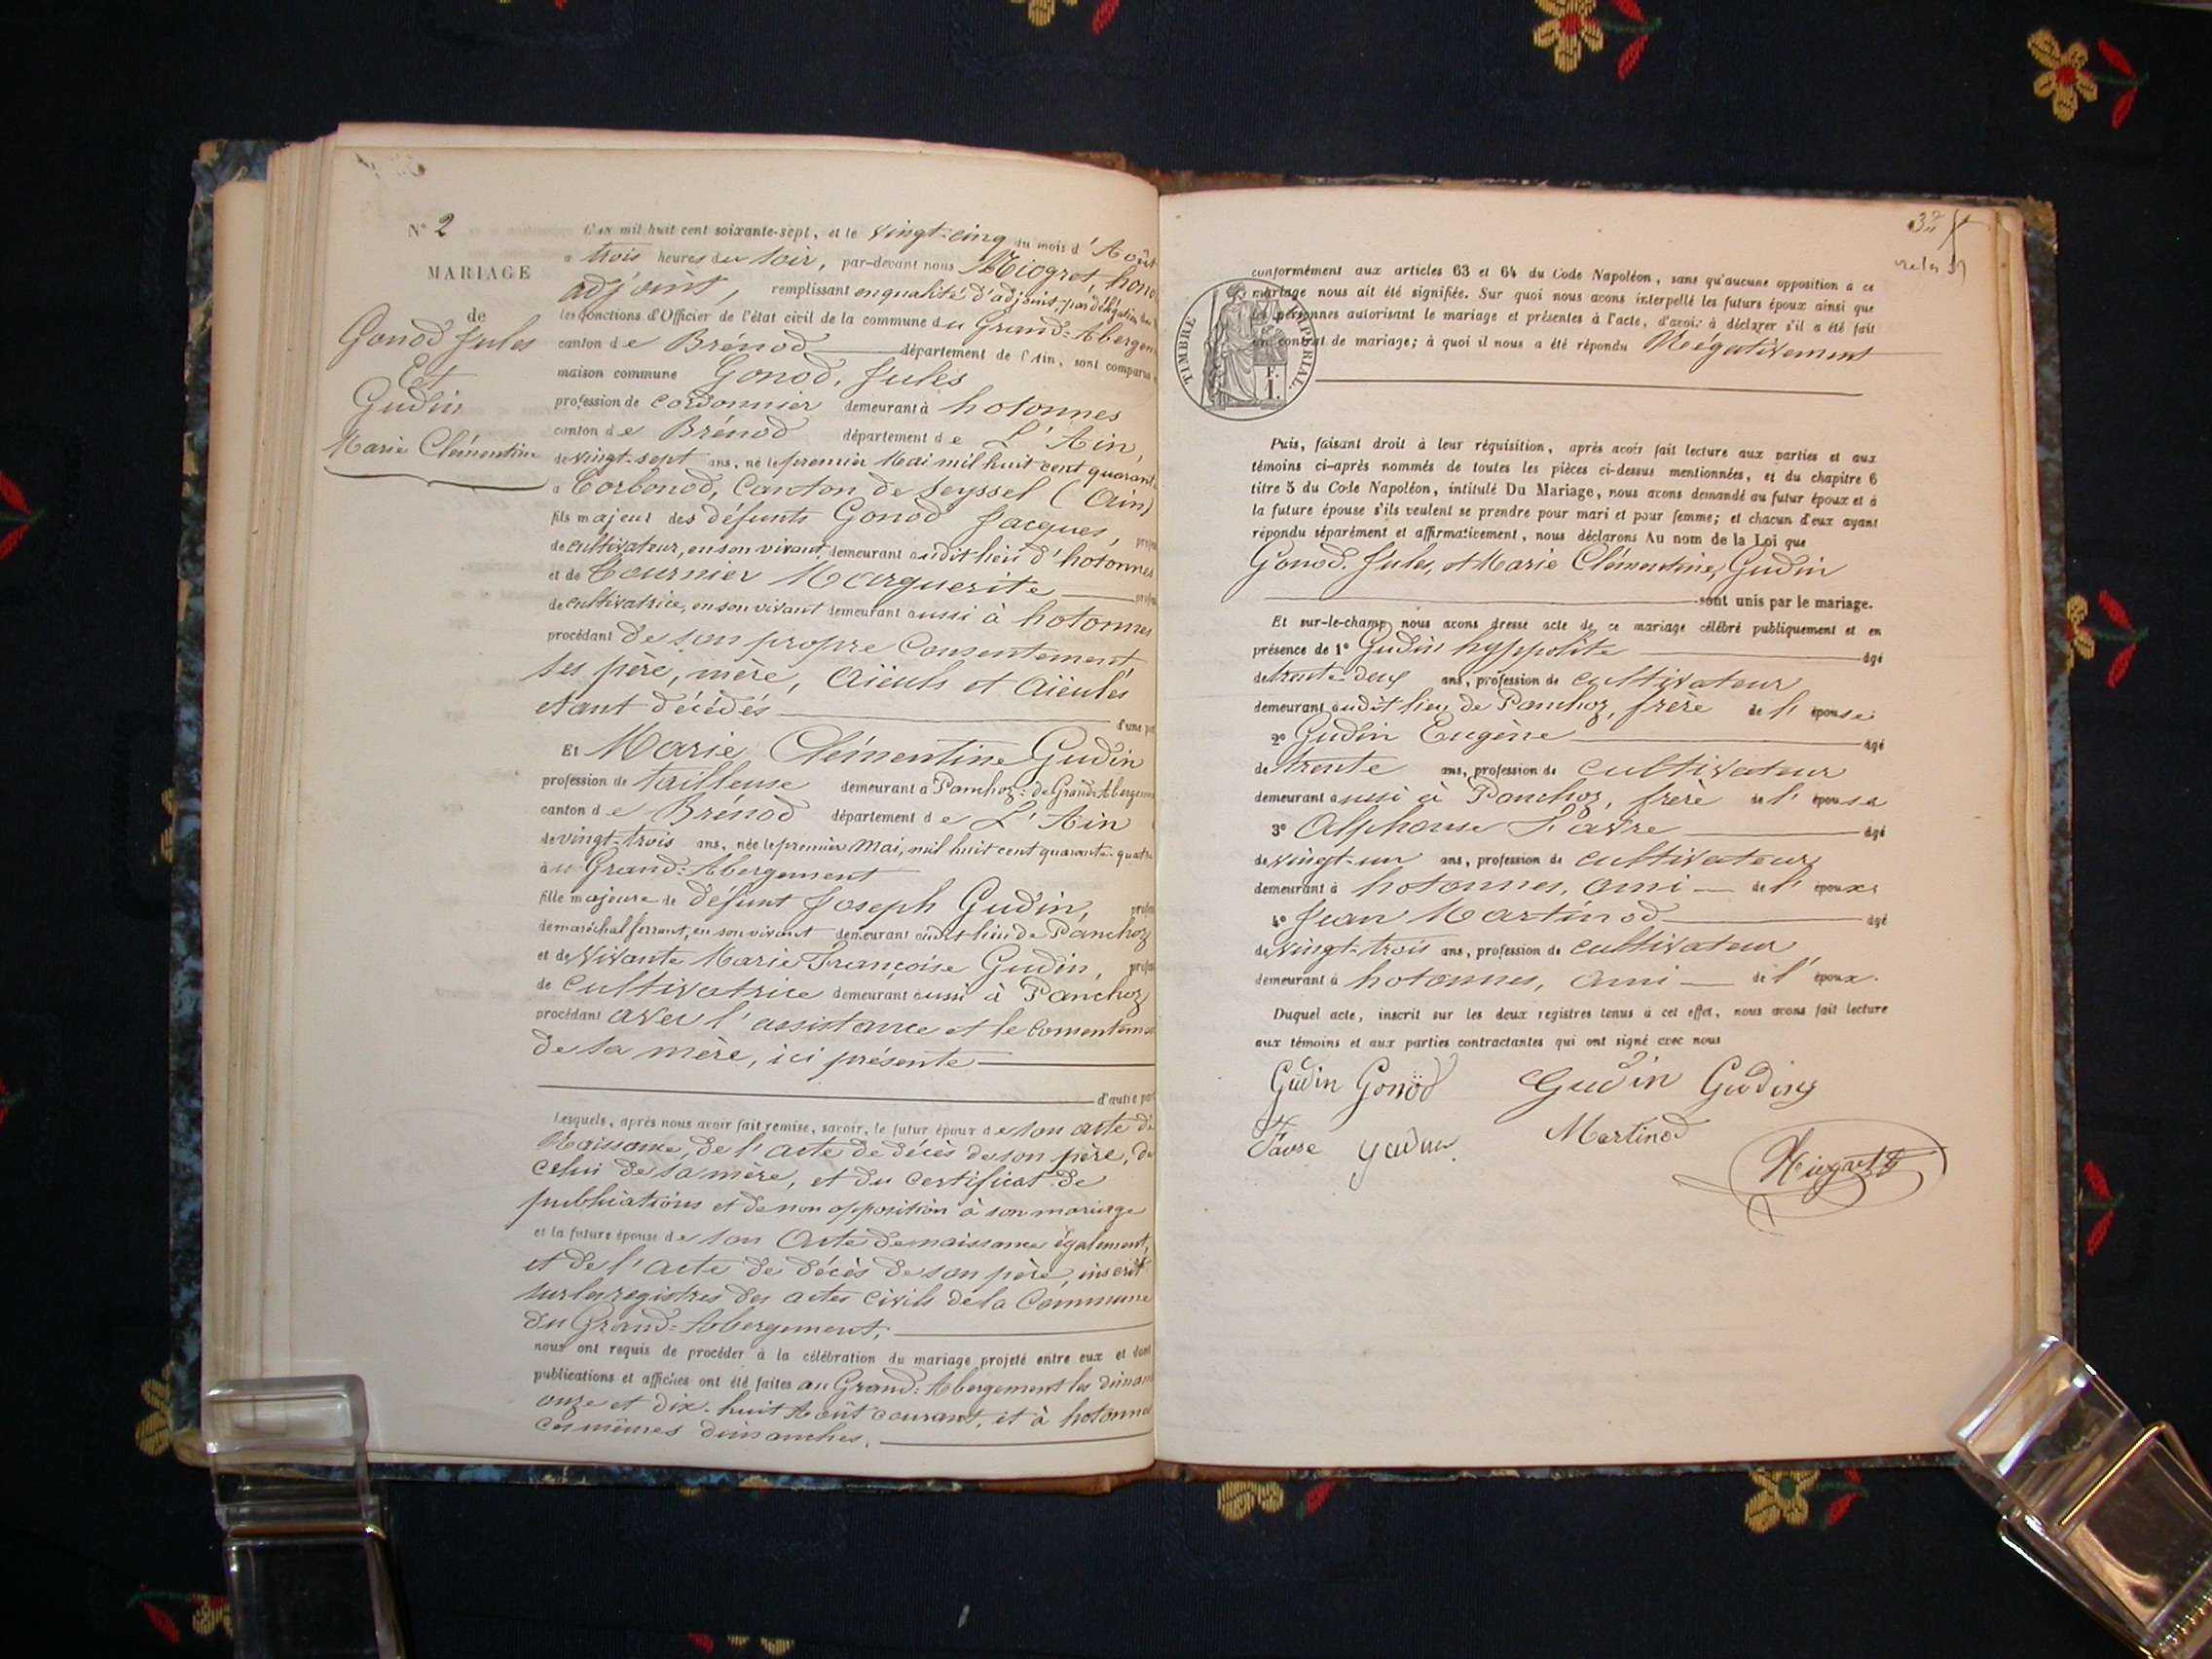 N° 2
MARIAGE
de
Gonod Jules
Et
Gudin
Marie Clémentine
L'AN mil huit cent soixante-sept, et le vingt-cinq du mois d'Août
a trois heures du soir, par-devant nous Miogret, hono
adjoint, remplissant en qualité d'adjoint, par délégation
les fonctions d'Officier de l'état civil de la commune du Grand-Abergem
canton de Brénod département de l'Ain, sont comparus
maison commune Gonod, Jules
profession de cordonnier demeurant à hotonnes
canton de Brénod département de L'Ain,
de vingt-sept ans, né le premier Mai mil huit cent quarant
a Corbonod, Canton de Seyssel (Ain)
fils majeur des défunts Gonod Jacques, profes
de cultivateur, en son vivant, demeurant audit lieu d'hotonnes
et de Tournier Marguerite profes
de cultivatrice, en son vivant demeurant aussi à hotonnes
procédant de son propre Consentement,
ses père, mère, Aïeuls et Aïeules
étant décédés d'une pa
Et Marie Clémentine Gudin
profession de tailleuse demeurant à Panchoz: de Grand-Abergeme
canton de Brénod département de L'Ain
de vingt-trois ans, née le premier Mai, mil huit cent quarante-quatre
au Grand-Abergement
fille majeure de défunt Joseph Gudin, profes
de maréchal ferrant, en son vivant demeurant audit lieu de Panchoz
et de Vivante Marie Françoise Gudin, profes
de Cultivatrice demeurant aussi à Panchoz
procédant avec l'assistance et le Consenteme
de sa mère, ici présente
d'autre par
Lesquels, après nous avoir fait remise, savoir, le futur époux de son acte de
Naissance, de l'acte de décès de son père, de
celui de sa mère, et du certificat de
publications et de non opposition à son mariage
et la future épouse de son Acte de naissance également,
et de l'acte de décès de son père, inscrit
sur les registres des actes civils de la Commune
du Grand-Abergement,
nous ont requis de procéder à la célébration du mariage projeté entre eux et dont
publications et affiches ont été faites au Grand-Abergement les diman
onze et dix-huit Août courant, et à hotonnes
ces mêmes dimanches.
37
TIMBRE IMPÉRIAL.
F.
1.
conformément aux articles 63 et 64 du Code Napoléon, sans qu'aucune opposition à ce
mariage nous ait été signifiée. Sur quoi nous avons interpellé les futurs époux ainsi que
les personnes autorisant le mariage et présentes à l'acte, d'avoir à déclarer s'il a été fait
un contrat de mariage; à quoi il nous a été répondu Négativement
Puis, faisant droit à leur réquisition, après avoir fait lecture aux parties et aux
témoins ci-après nommés de toutes les pièces ci-dessus mentionnées, et du chapitre 6
titre 5 du Code Napoléon, intitulé Du Mariage, nous avons demandé au futur époux et à
la future épouse s'ils veulent se prendre pour mari et pour femme; et chacun d'eux ayant
répondu séparément et affirmativement, nous déclarons Au nom de la Loi que
Gonod. Jules, et Marie Clémentine, Gudin
sont unis par le mariage.
Et sur-le-champ nous avons dressé acte de ce mariage célébré publiquement et en
présence de 1° Gudin hyppolite âgé
de trente-deux ans, profession de cultivateur
demeurant audit lieu de Panchoz, frère de l'épouse
2° Gudin Eugène âgé
de trente ans, profession de cultivateur
demeurant aussi à Panchoz, frère de l'épouse
3° Alphonse Favre âgé
de vingt-un ans, profession de cultivateur
demeurant à hotonnes, ami de l'époux
4° Jean Martinod âgé
de vingt-trois ans, profession de cultivateur
demeurant à hotonnes, ami de l'époux.
Duquel acte, inscrit sur les deux registres tenus à cet effet, nous avons fait lecture
aux témoins et aux parties contractantes qui ont signé avec nous
Gudin Gonod Gudin Gudin
Favre gudin Martinod
Miogret